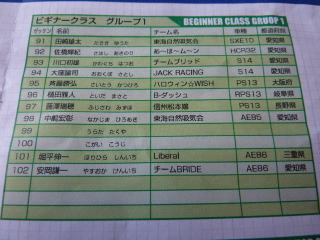 ビギナークラス グループ1 BEGINNER CLASS GROUP 1
ゼッケン 名前 チーム名 車種 都道府県
91 田崎雄太 たさき ゆうた 東海自然吸気会 SXE10 愛知県
92 佐橋輝紀 さはし あきのり あ~ほ~ム~ン HCR32 愛知県
93 川口初雄 かわぐち はつお チームブリッド S14 愛知県
94 大窪諭司 おおくぼ さとし JACK RACING S14 愛知県
95 斉藤勝弘 さいとう かつひろ ハロウィン☆WISH PS13 大阪府
96 樋田雅人 といだ まさと B-ダッシュ RPS13 岐阜県
97 藤澤瑞穂 ふじさわ みずほ 信州松本塾 PS13 長野県
98 中嶋宏彰 なかじま ひろあき 東海自然吸気会 AE85 愛知県
99 うらた たくや
100 こがい こうじ
101 堀平伸一 ほりひら しんいち Liberal AE86 三重県
102 安岡謙一 やすおか けんいち チームBRIDE AE86 愛知県